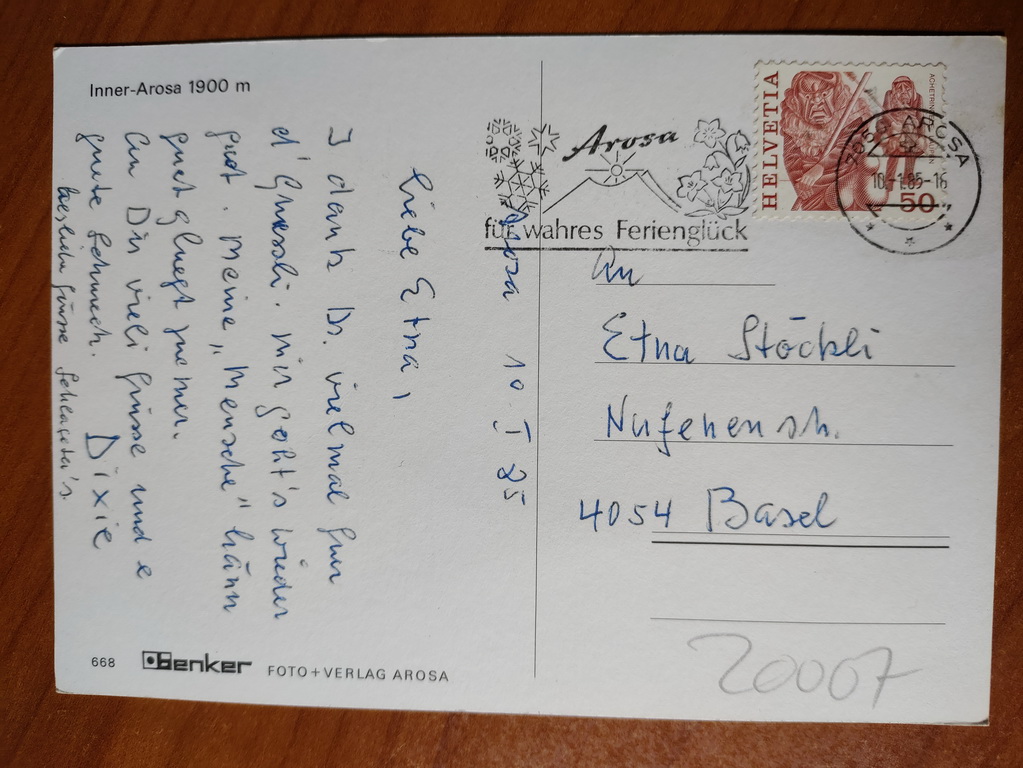 Inner-Arosa 1900 m
Arosa 10. I 85
Liebe Etna,
I dank Dr. vielmal für
d'Gruessli. Mir goht's wieder
guet. Meine "Mensche" hänn
guet gluegt zue mer.
An Din vieli Grüsse und e
gute Schmuch. Dixie
Herzliche Grüsse
668 Benker FOTO+VERLAG AROSA
Arosa
für wahres Ferienglück
HELVETIA
50
7050 AROSA
10.-1.85-16
An
Etna Stöckli
Nufenenstr.
4054 Basel
20007